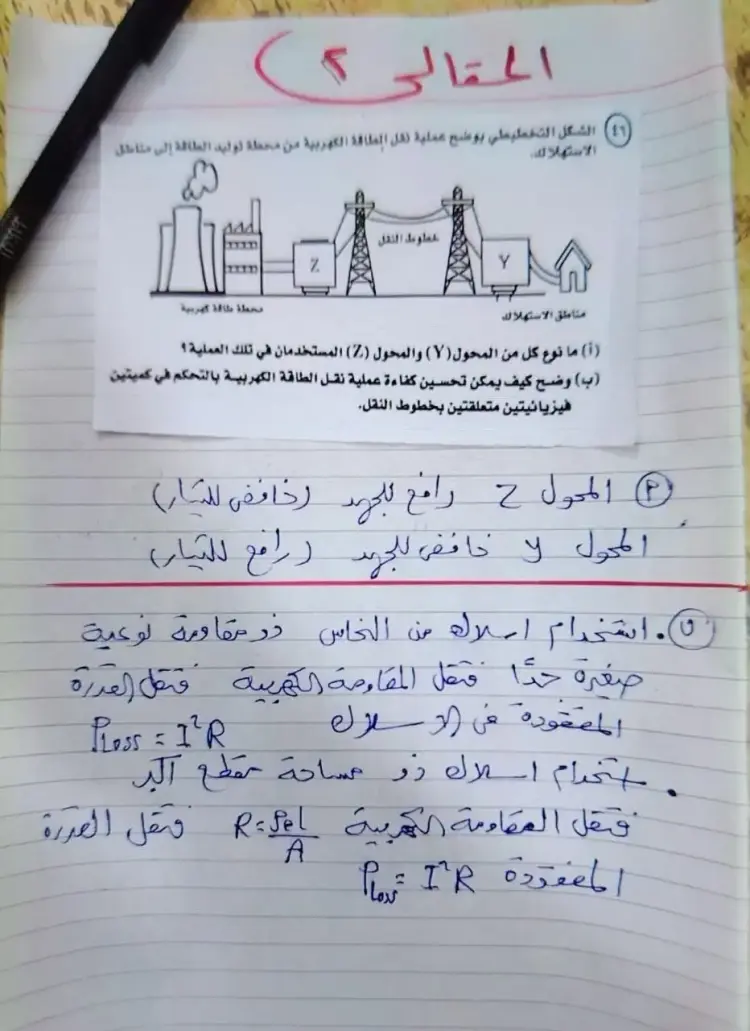 المقالى ٢)
٤٦ الشكل التخطيطي يوضح عملية نقل الطاقة الكهربية من محطة توليد الطاقة إلى مناطق
الاستهلاك.
خطوط النقل
Z
Y
محطة طاقة كهربية
مناطق الاستهلاك
(أ) ما نوع كل من المحول (Y) والمحول (Z) المستخدمان في تلك العملية ؟
(ب) وضح كيف يمكن تحسين كفاءة عملية نقل الطاقة الكهربية بالتحكم في كميتين
فيزيائيتين متعلقتين بخطوط النقل.
P المحول Z رافع للجهد (خافض للتيار)
المحول Y خافض للجهد (رافع للتيار)
ب . استخدام اسلاك من النحاس ذو مقاومة نوعية
صغيرة جدًا فتقل المقاومة الكهربية فتقل القدرة
المفقودة فى الاسلاك Ploss = I²R
. استخدام اسلاك ذو مساحة مقطع اكبر
فتقل المقاومة الكهربية R = ρel/A فتقل القدرة
المفقودة Ploss = I²R